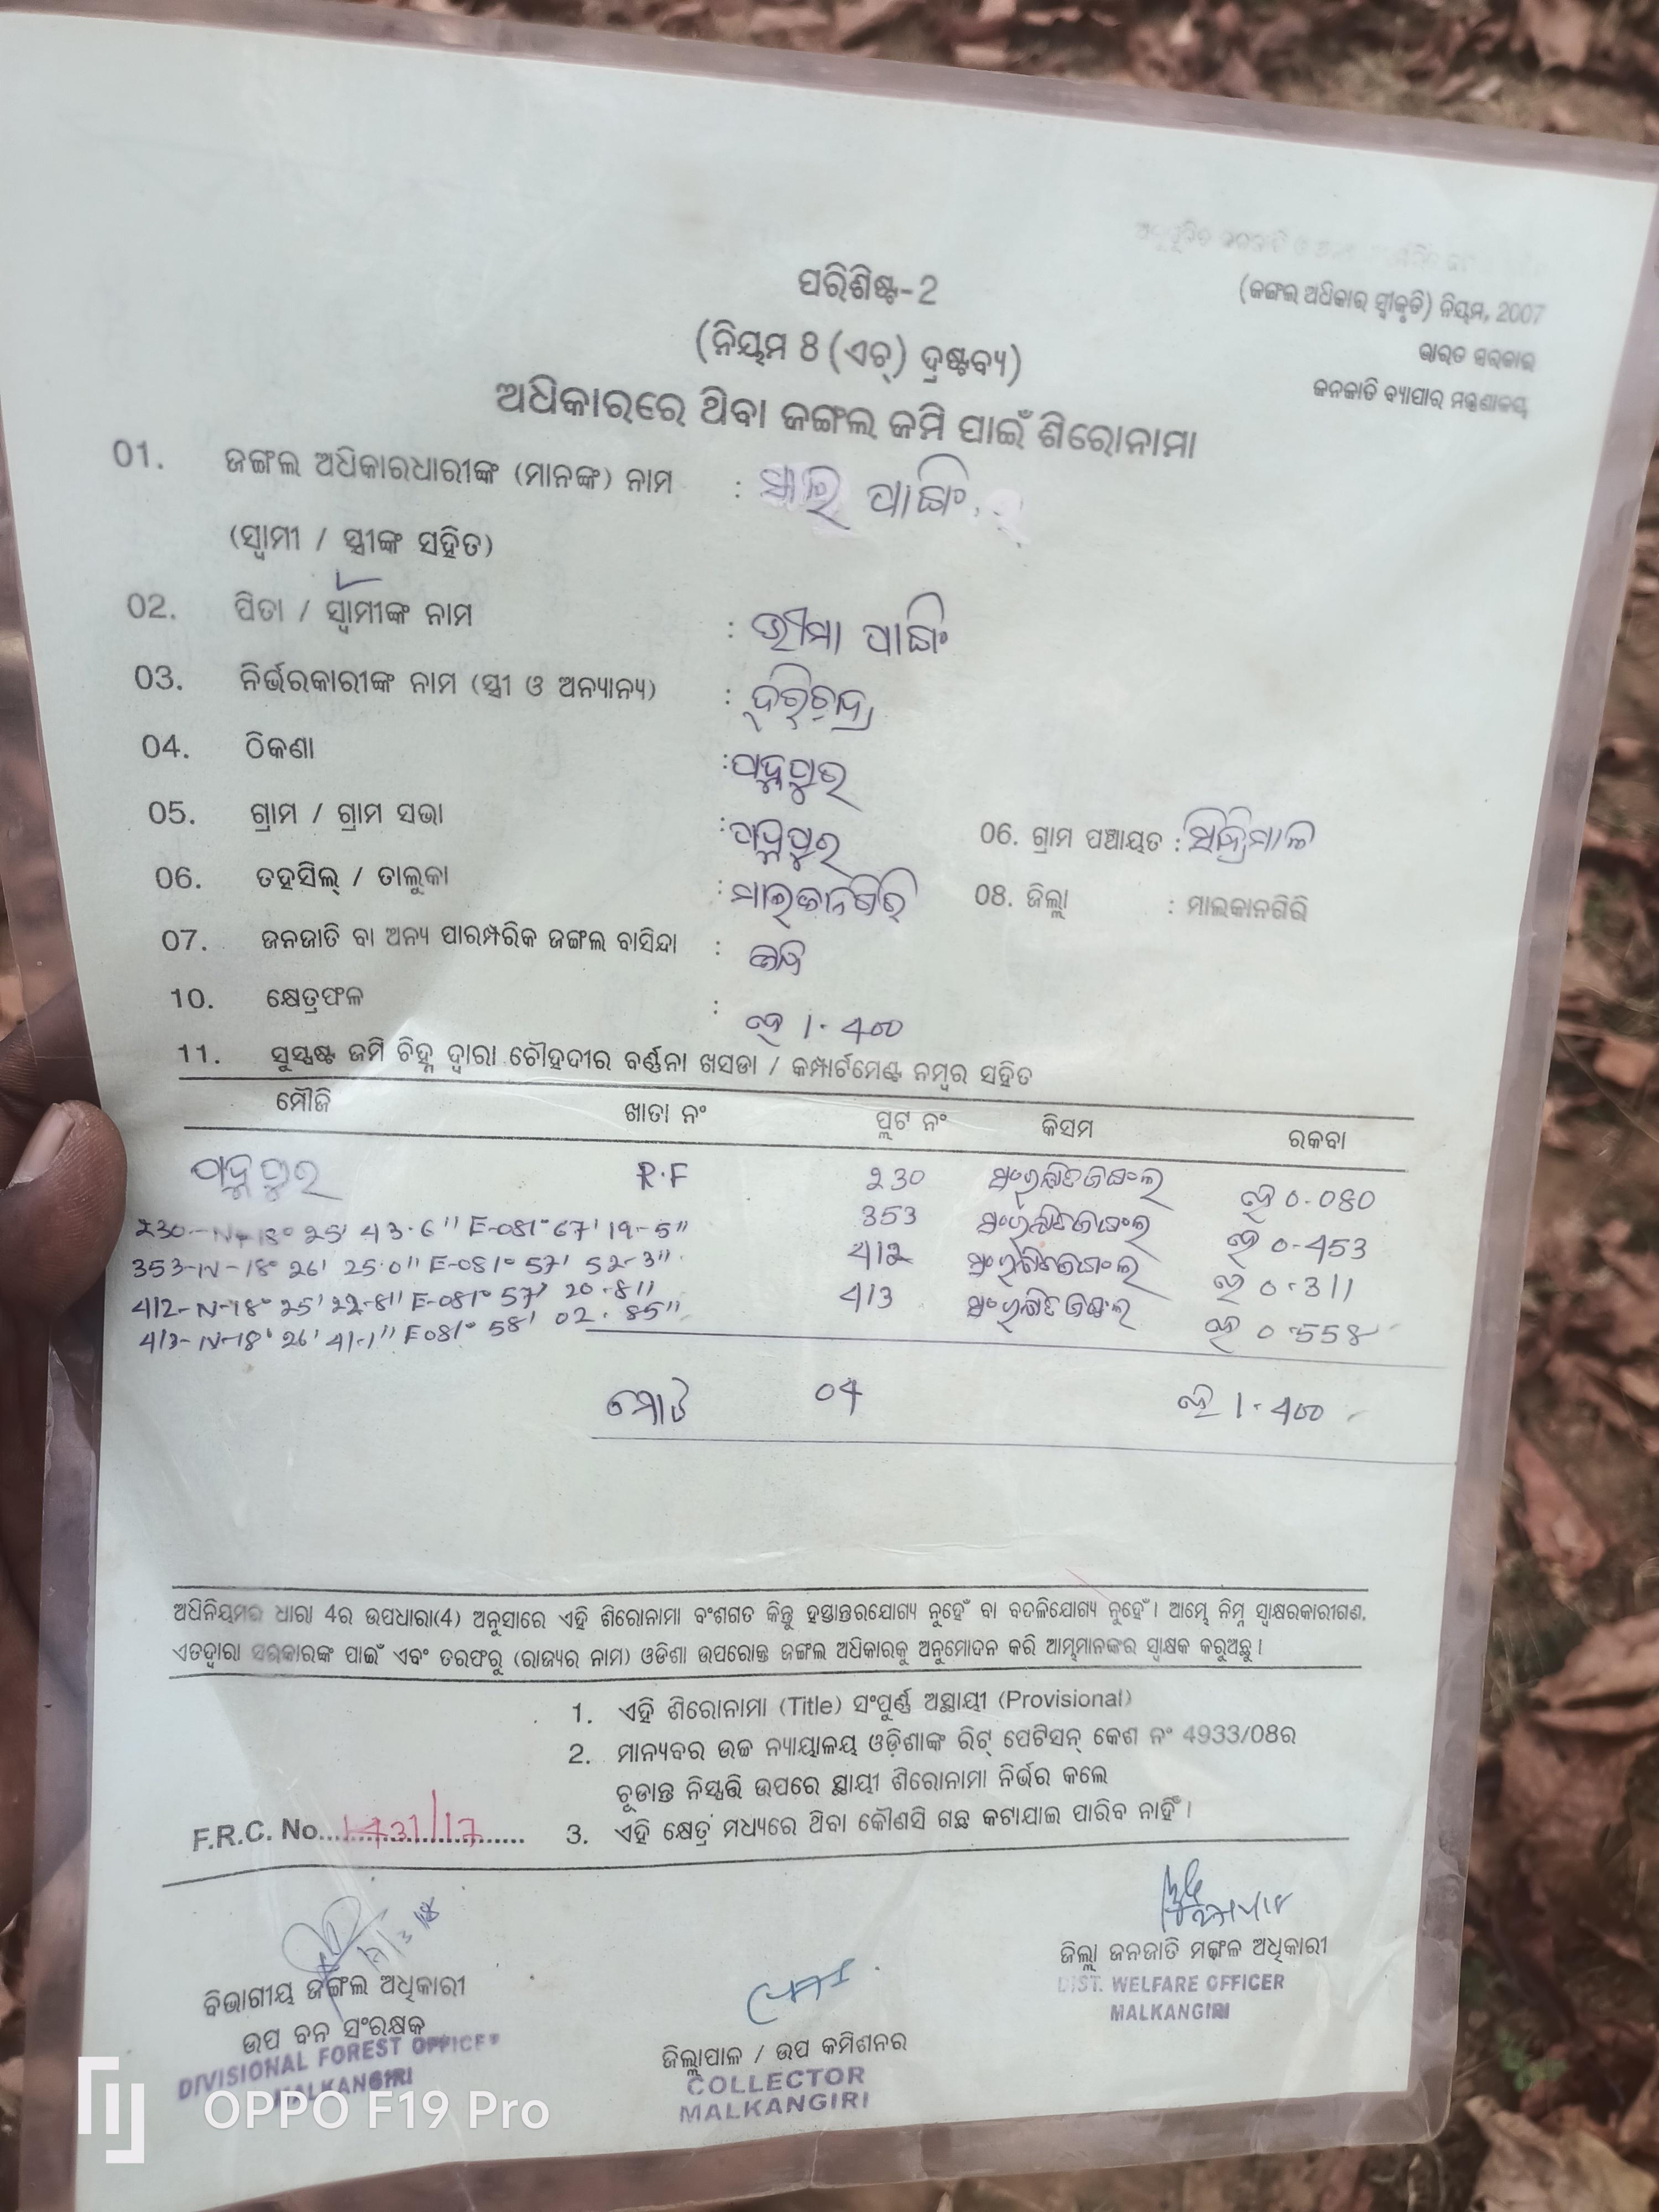 ପରିଶିଷ୍ଟ-2
(ଜଙ୍ଗଲ ଅଧିକାର ସ୍ୱୀକୃତି) ନିୟମ, 2007
(ନିୟମ 8 (ଏଚ୍) ଦ୍ରଷ୍ଟବ୍ୟ)
ଭାରତ ସରକାର
ଜନଜାତି ବ୍ୟାପାର ମନ୍ତ୍ରଣାଳୟ
ଅଧିକାରରେ ଥିବା ଜଙ୍ଗଲ ଜମି ପାଇଁ ଶିରୋନାମା
01. ଜଙ୍ଗଲ ଅଧିକାରଧାରୀଙ୍କ (ମାନଙ୍କ) ନାମ :
(ସ୍ୱାମୀ / ସ୍ତ୍ରୀଙ୍କ ସହିତ)
02. ପିତା / ସ୍ୱାମୀଙ୍କ ନାମ : ଭୀମା
03. ନିର୍ଭରକାରୀଙ୍କ ନାମ (ସ୍ତ୍ରୀ ଓ ଅନ୍ୟାନ୍ୟ) :
04. ଠିକଣା : ପଦ୍ମପୁର
05. ଗ୍ରାମ / ଗ୍ରାମ ସଭା : ପଦ୍ମପୁର 06. ଗ୍ରାମ ପଞ୍ଚାୟତ :
06. ତହସିଲ୍ / ତାଲୁକା : ମାଲକାନଗିରି 08. ଜିଲ୍ଲା : ମାଲକାନଗିରି
07. ଜନଜାତି ବା ଅନ୍ୟ ପାରମ୍ପରିକ ଜଙ୍ଗଲ ବାସିନ୍ଦା :
10. କ୍ଷେତ୍ରଫଳ : ହେ 1.400
11. ସୁସ୍ପଷ୍ଟ ଜମି ଚିହ୍ନ ଦ୍ୱାରା ଚୌହଦୀର ବର୍ଣ୍ଣନା ଖସଡା / କମ୍ପାର୍ଟମେଣ୍ଟ ନମ୍ବର ସହିତ
ମୌଜି ଖାତା ନଂ ପ୍ଲଟ ନଂ କିସମ ରକବା
ପଦ୍ମପୁର R.F 230 ସଂରକ୍ଷିତ ଜଙ୍ଗଲ ହେ 0.080
230-N-18° 25' 43.6" E-081° 67' 19-5" 353 ସଂରକ୍ଷିତ ଜଙ୍ଗଲ ହେ 0-453
353-N-18° 26' 25.0" E-081° 57' 52-3" 412 ସଂରକ୍ଷିତ ଜଙ୍ଗଲ ହେ 0.311
412-N-18° 25' 22-8" E-081° 57' 20-8" 413 ସଂରକ୍ଷିତ ଜଙ୍ଗଲ ହେ 0.558
413-N-18° 26' 41-1" E081° 58' 02.85"
ମୋଟ 04 ହେ 1.400
ଅଧିନିୟମର ଧାରା 4ର ଉପଧାରା(4) ଅନୁସାରେ ଏହି ଶିରୋନାମା ବଂଶଗତ କିନ୍ତୁ ହସ୍ତାନ୍ତରଯୋଗ୍ୟ ନୁହେଁ ବା ବଦଳିଯୋଗ୍ୟ ନୁହେଁ। ଆମ୍ଭେ ନିମ୍ନ ସ୍ୱାକ୍ଷରକାରୀଗଣ,
ଏତଦ୍ୱାରା ସରକାରଙ୍କ ପାଇଁ ଏବଂ ତରଫରୁ (ରାଜ୍ୟର ନାମ) ଓଡିଶା ଉପରୋକ୍ତ ଜଙ୍ଗଲ ଅଧିକାରକୁ ଅନୁମୋଦନ କରି ଆମ୍ଭମାନଙ୍କର ସ୍ୱାକ୍ଷକ କରୁଅଛୁ।
1. ଏହି ଶିରୋନାମା (Title) ସଂପୂର୍ଣ୍ଣ ଅସ୍ଥାୟୀ (Provisional)
2. ମାନ୍ୟବର ଉଚ୍ଚ ନ୍ୟାୟାଳୟ ଓଡ଼ିଶାଙ୍କ ରିଟ୍ ପେଟିସନ୍ କେଶ ନଂ 4933/08ର
ଚୂଡାନ୍ତ ନିସ୍ପତ୍ତି ଉପରେ ସ୍ଥାୟୀ ଶିରୋନାମା ନିର୍ଭର କଲେ
F.R.C. No. 1431/17 3. ଏହି କ୍ଷେତ୍ର ମଧ୍ୟରେ ଥିବା କୌଣସି ଗଛ କଟାଯାଇ ପାରିବ ନାହିଁ।
ଜିଲ୍ଲା ଜନଜାତି ମଙ୍ଗଳ ଅଧିକାରୀ
DIST. WELFARE OFFICER
MALKANGIRI
ବିଭାଗୀୟ ଜଙ୍ଗଲ ଅଧିକାରୀ
ଉପ ବନ ସଂରକ୍ଷକ
DIVISIONAL FOREST OFFICER
MALKANGIRI
ଜିଲ୍ଲାପାଳ / ଉପ କମିଶନର
COLLECTOR
MALKANGIRI
OPPO F19 Pro